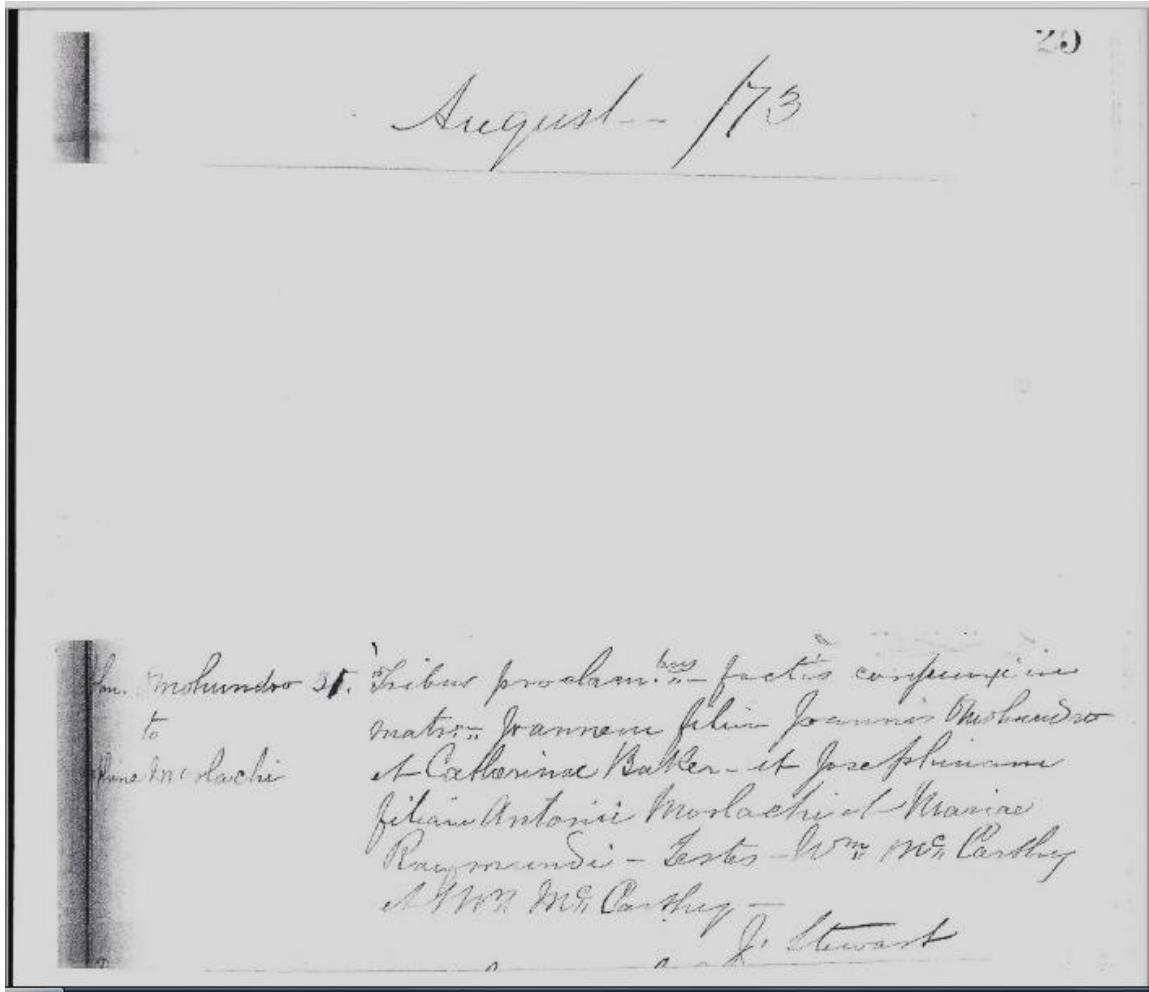 20
August -- /73
Jno. Omohundro 31. Tribus proclam.bus factis conjunxi in
to matr:m Joannem filium Joannis Omohundro
phine Morlachi et Catherinae Baker - et Josephinam
filiam Antonii Morlachi et Mariae
Raymundi - Testes - Wm McCarthy
et McCarthy -
J. Stewart